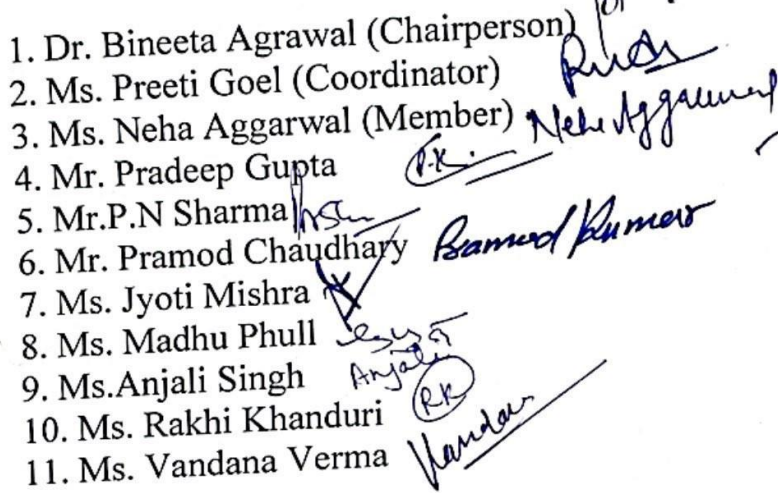 1. Dr. Bineeta Agrawal (Chairperson)
2. Ms. Preeti Goel (Coordinator)
3. Ms. Neha Aggarwal (Member) Neha Aggarwal
4. Mr. Pradeep Gupta P.K.
5. Mr.P.N Sharma
6. Mr. Pramod Chaudhary Pramod Kumar
7. Ms. Jyoti Mishra
8. Ms. Madhu Phull
9. Ms.Anjali Singh Anjali
10. Ms. Rakhi Khanduri RK
11. Ms. Vandana Verma Vandana